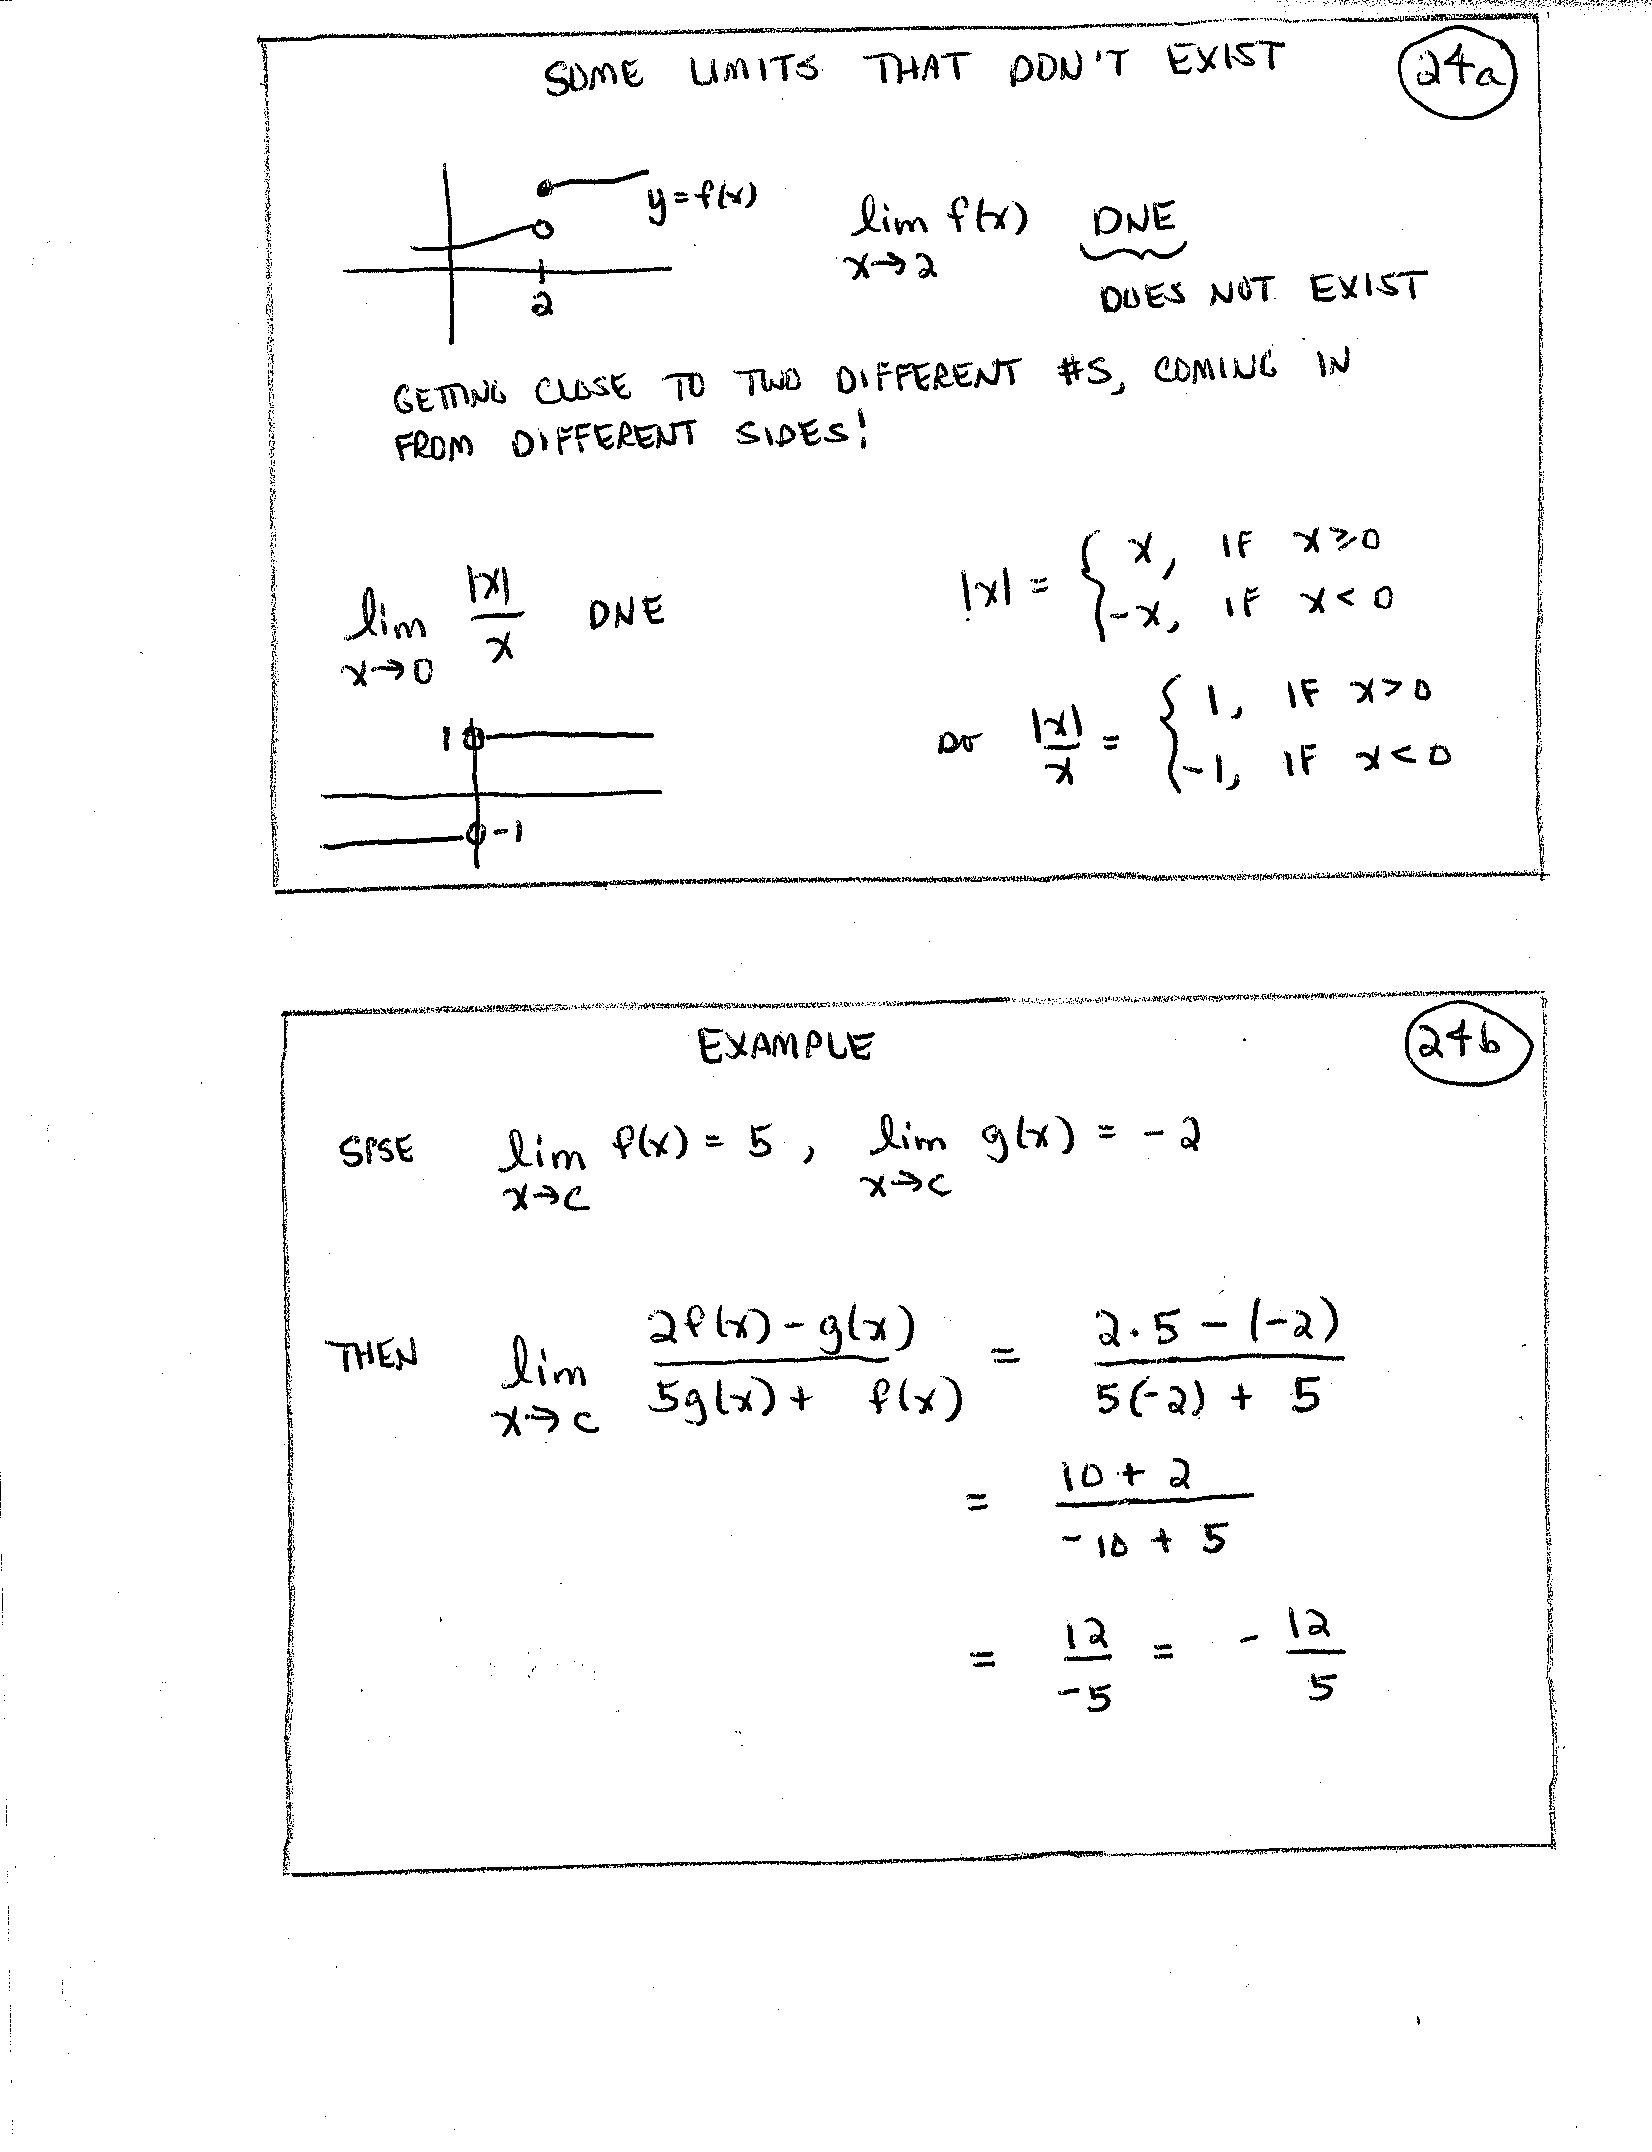 SOME LIMITS THAT DON'T EXIST
24a
y = f(x)
2
lim f(x) DNE
x→2
DOES NOT EXIST
GETTING CLOSE TO TWO DIFFERENT #S, COMING IN
FROM DIFFERENT SIDES!
lim |x|/x DNE
x→0
|x| = { x, IF x ≥ 0
-x, IF x < 0
so |x|/x = { 1, IF x > 0
-1, IF x < 0
1
-1
EXAMPLE
24b
SPSE lim f(x) = 5, lim g(x) = -2
x→c x→c
THEN lim (2f(x) - g(x))/(5g(x) + f(x)) = (2·5 - (-2))/(5(-2) + 5)
x→c
= (10 + 2)/(-10 + 5)
= 12/-5 = - 12/5